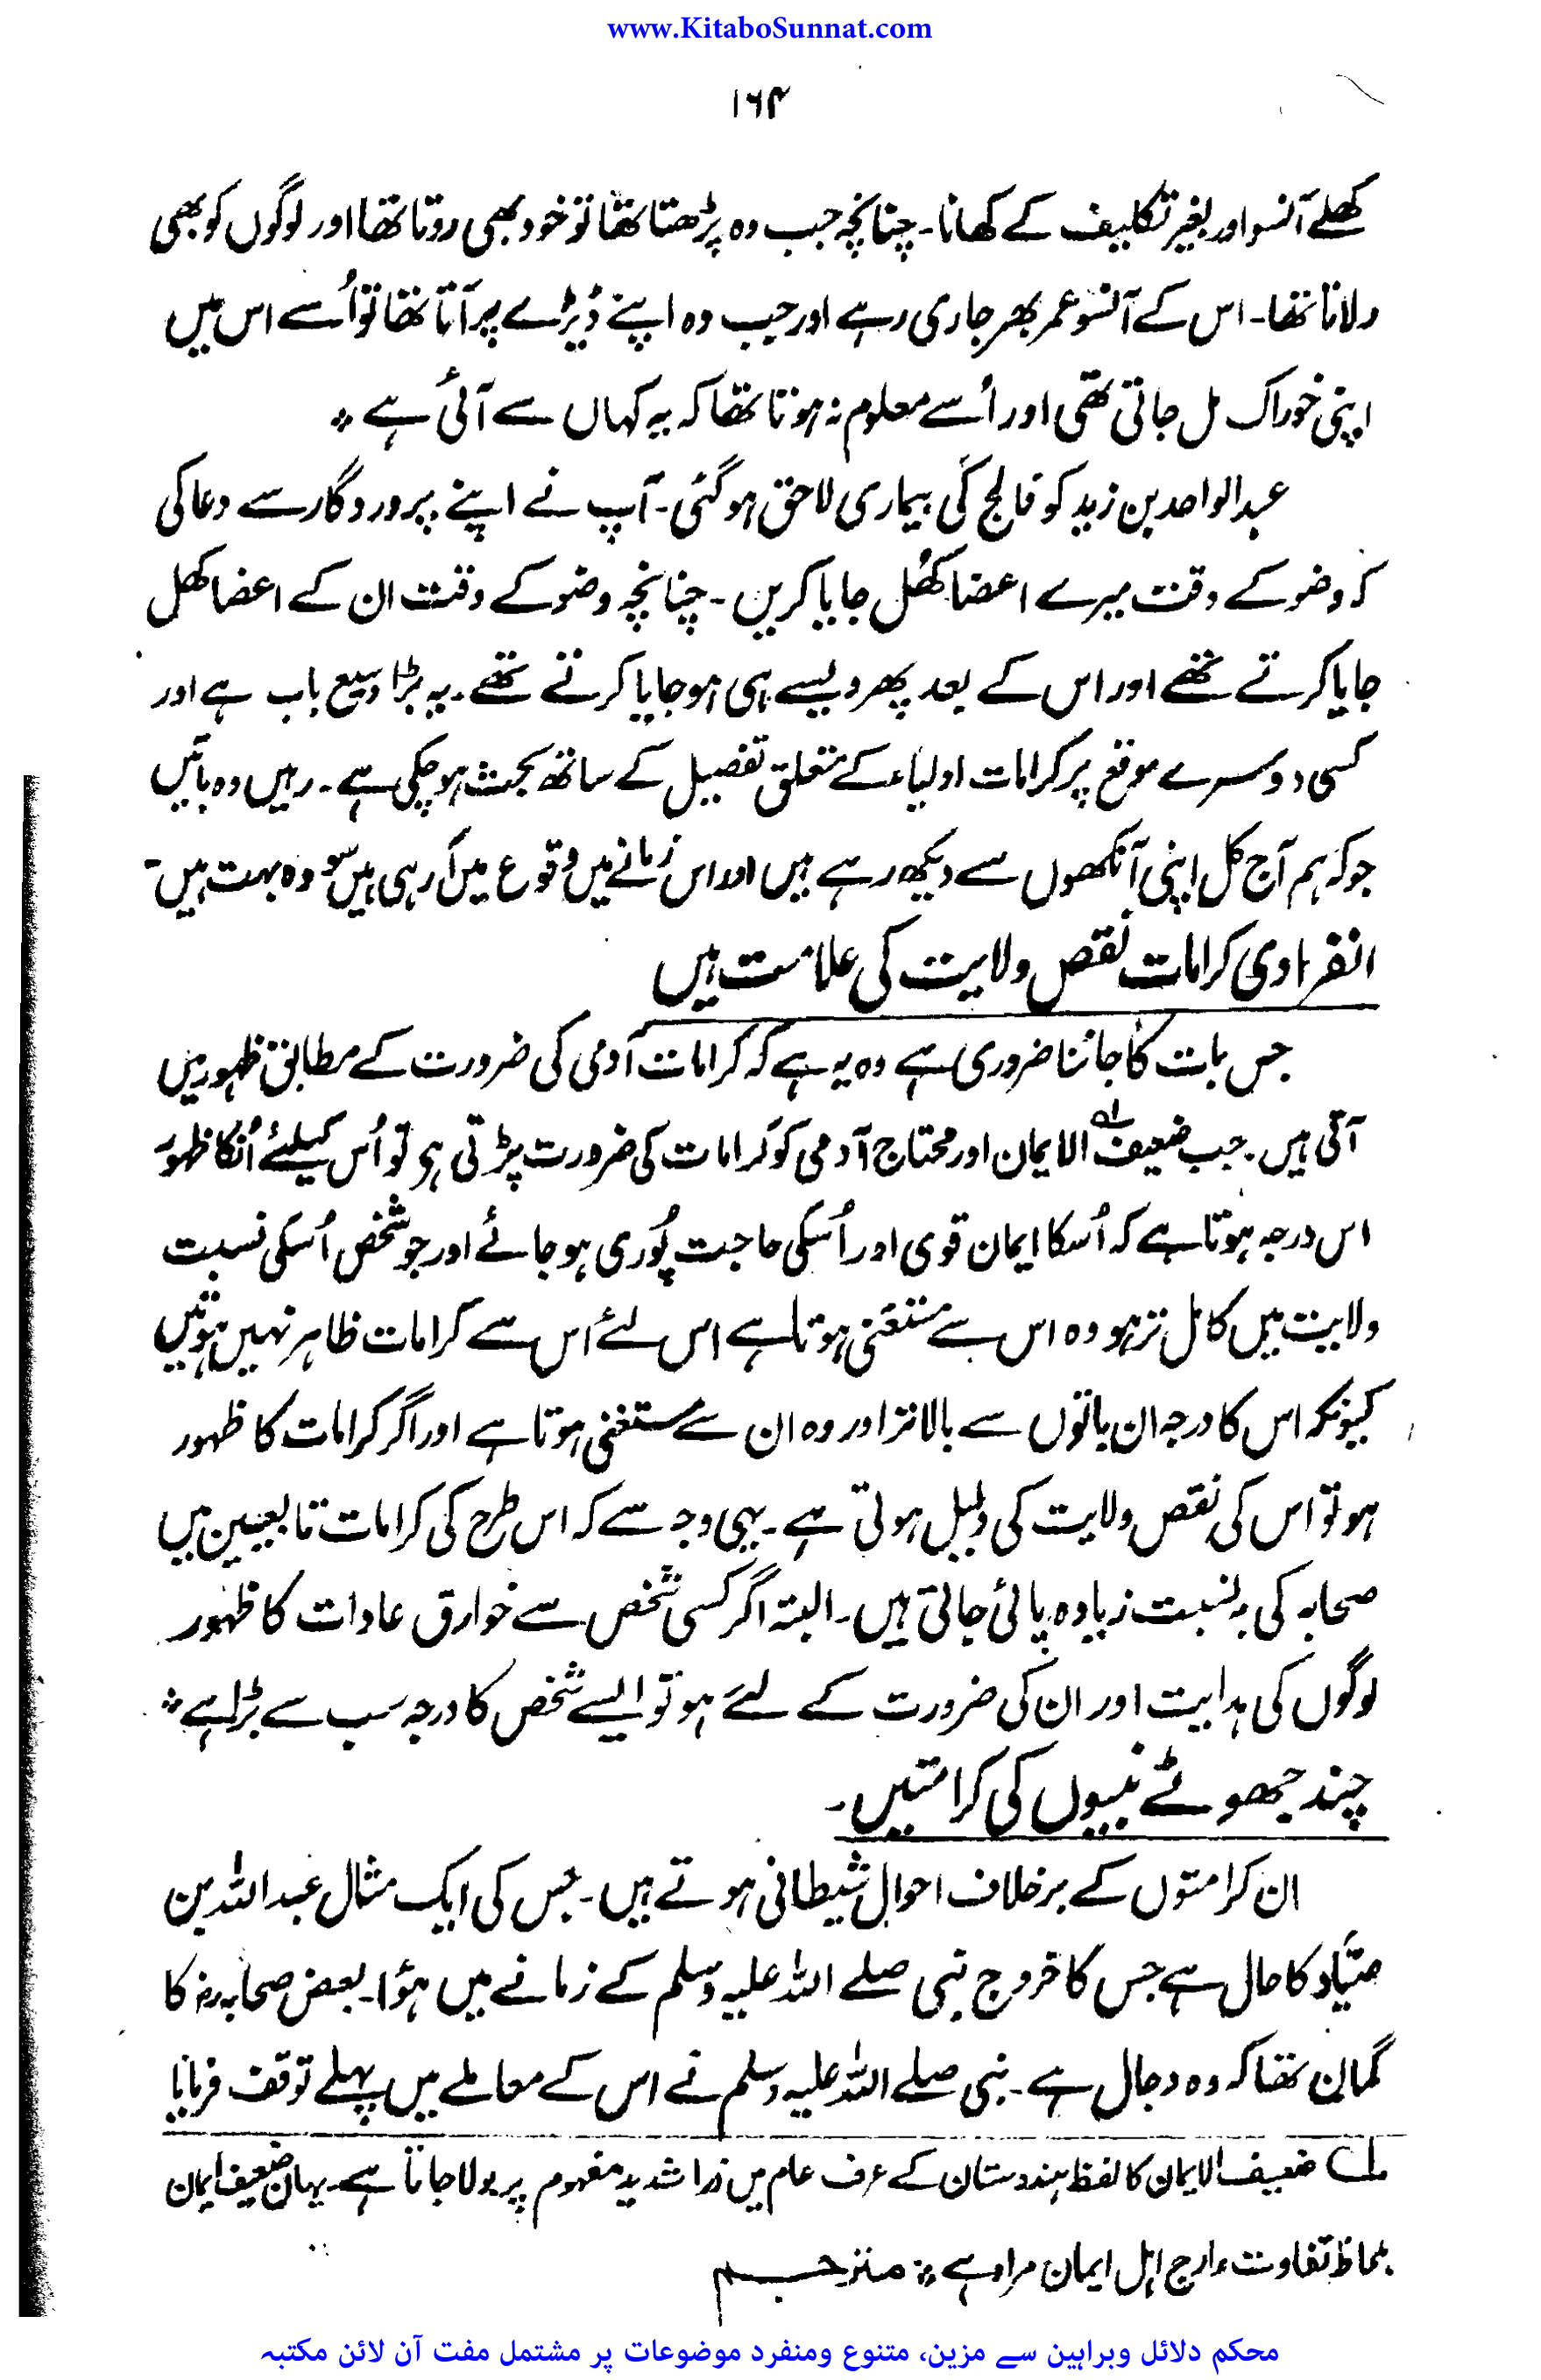 www.KitaboSunnat.com
۱۶۴
کھلے آنسو اور بغیر تکلیف کے کھانا۔ چنانچہ جب وہ پڑھتا تھا تو خود بھی روتا تھا اور لوگوں کو بھی
رلاتا تھا۔ اس کے آنسو عمر بھر جاری رہے اور جب وہ اپنے ڈیڑے پر آتا تھا تو اُسے اس میں
اپنی خوراک مل جاتی تھی اور اُسے معلوم نہ ہوتا تھا کہ یہ کہاں سے آئی ہے ٭
عبدالواحد بن زید کو فالج کی بیماری لاحق ہو گئی۔ آپ نے اپنے پروردگار سے دعا کی
کہ وضو کے وقت میرے اعضا کھُل جایا کریں۔ چنانچہ وضو کے وقت ان کے اعضا کھل
جایا کرتے تھے اور اس کے بعد پھر ویسے ہی ہو جایا کرتے تھے۔ یہ بڑا وسیع باب ہے اور
کسی دوسرے موقع پر کرامات اولیاء کے متعلق تفصیل کے ساتھ بحث ہو چکی ہے۔ رہیں وہ باتیں
جو کہ ہم آج کل اپنی آنکھوں سے دیکھ رہے ہیں اور اس زمانے میں وقوع میں آ رہی ہیں سو وہ بہت ہیں۔
انفرادی کرامات نقص ولایت کی علامت ہیں
جس بات کا جاننا ضروری ہے وہ یہ ہے کہ کرامات آدمی کی ضرورت کے مطابق ظہور میں
آتی ہیں۔ جب ضعیف الایمان اور محتاج آدمی کو کرامات کی ضرورت پڑتی ہو تو اُس کیلئے اُنکا ظہور
اس درجہ ہوتا ہے کہ اُسکا ایمان قوی اور اُسکی حاجت پُوری ہو جائے اور جو شخص اُسکی نسبت
ولایت میں کامل تر ہو وہ اس سے مستغنی ہوتا ہے اس لئے اس سے کرامات ظاہر نہیں ہوتیں
کیونکہ اس کا درجہ ان باتوں سے بالاتر اور وہ ان سے مستغنی ہوتا ہے اور اگر کرامات کا ظہور
ہو تو اس کی نقص ولایت کی دلیل ہوتی ہے۔ یہی وجہ سے کہ اس طرح کی کرامات تابعیین میں
صحابہ کی بہ نسبت زیادہ پائی جاتی ہیں۔ البتہ اگر کسی شخص سے خوارق عادات کا ظہور
لوگوں کی ہدایت اور ان کی ضرورت کے لئے ہو تو ایسے شخص کا درجہ سب سے بڑا ہے ٭
چند جھوٹے نبیوں کی کرامتیں۔
ان کرامتوں کے برخلاف احوال شیطانی ہوتے ہیں۔ جس کی ایک مثال عبداللہ بن
صیّاد کا حال ہے جس کا خروج نبی صلے اللہ علیہ وسلم کے زمانے میں ہؤا۔ بعض صحابہ رض کا
گمان تھا کہ وہ دجال ہے۔ نبی صلے اللہ علیہ وسلم نے اس کے معاملے میں پہلے توقف فرمایا
لہ ضعیف الایمان کا لفظ ہندوستان کے عرف عام میں ذرا شدید مفہوم پر بولا جاتا ہے۔ یہاں ضعیف ایمان
بلحاظ تفاوت مدارج اہل ایمان مراد ہے ٭ مترجم
محکم دلائل وبراہین سے مزین، متنوع ومنفرد موضوعات پر مشتمل مفت آن لائن مکتبہ